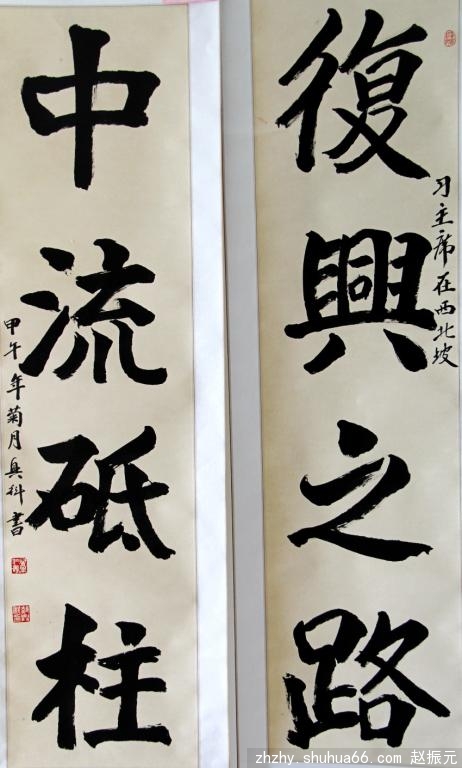 復興之路
习主席在西北坡
中流砥柱
甲午年菊月奥科書
zhzhy.shuhua66.com 赵振元